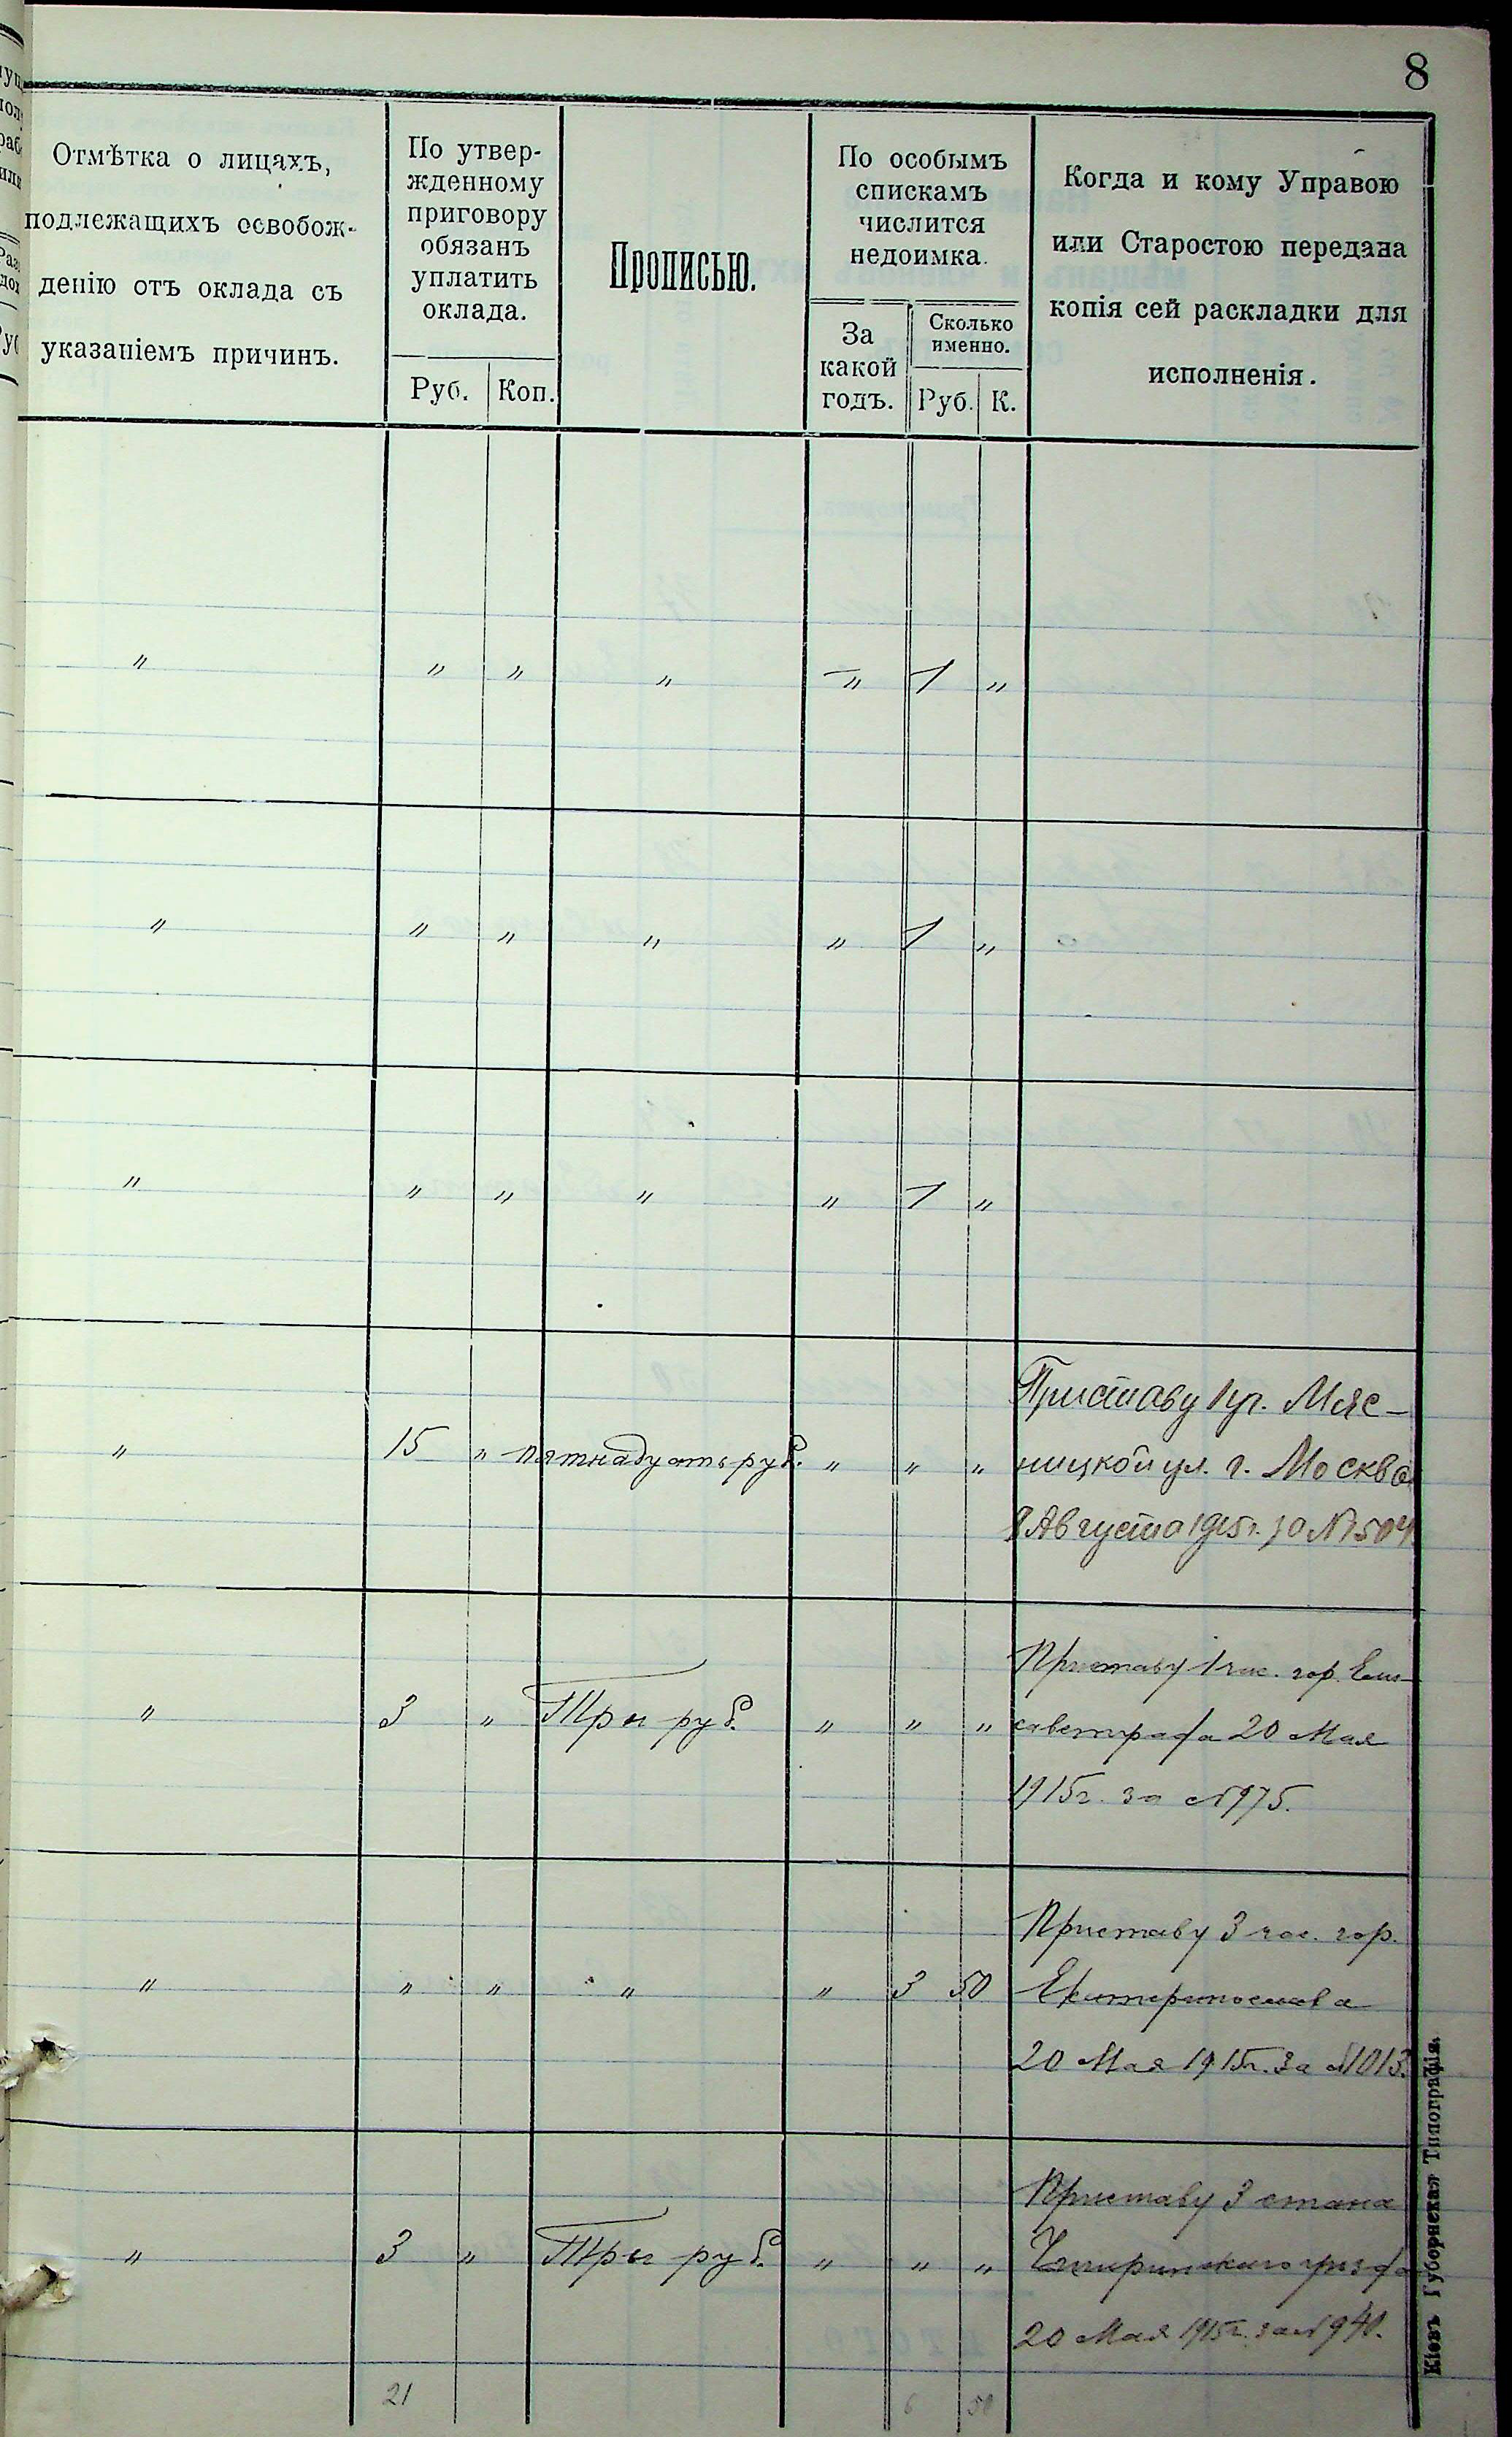 8
Отмѣтка о лицахъ,
подлежащихъ освобож-
денію отъ оклада съ
указаніемъ причинъ.
По утвер-
жденному
приговору
обязанъ
уплатить
оклада.
Руб. Коп.
Прописью.
По особымъ
спискамъ
числится
недоимка.
За
какой
годъ.
Сколько
именно.
Руб. К.
Когда и кому Управою
или Старостою передана
копія сей раскладки для
исполненія.
" " " " " 1 "
" " " " " 1 "
" " " " " 1 "
" 15 " пятнадцать руб. " " "
Приставу 1 уч. Мяс-
ницкой ул. г. Москва
8 Августа 1915 г. за № 1504
" 3 " Три руб. " " "
Приставу 1 час. гор. Ели-
саветграда 20 Мая
1915 г. за № 975.
" " " " " 3 50
Приставу 3 час. гор.
Екатеринослава
20 Мая 1915 г. за № 1013.
" 3 " Три руб. " " "
Приставу 3 стана
Чигиринского уезда
20 Мая 1915 г. за № 940.
21 6 50
Кіевъ Губернская Типографія.